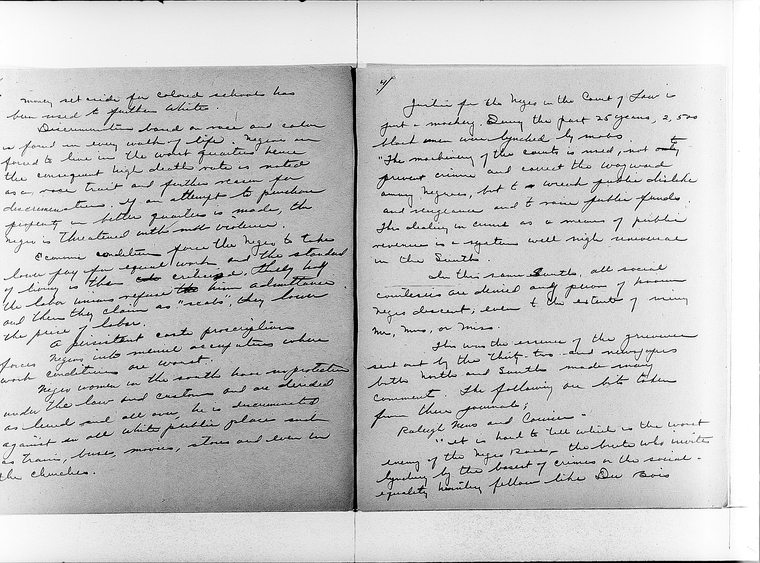 money set aside for colored schools has
been used to further White.
Discrimination based on race and color
is found in every walk of life. Negroes are
forced to live in the worst quarters hence
the consequent high death rate is noted
as a race trait and further reason for
discrimination. If an attempt to purchase
property in better quarters is made, the
Negro is threatened with mob violence.
Economic conditions force the Negro to take
low pay for equal work and the standard
of living is then criticised. They
the labor unions refuse him admittance
and then they claim as "scabs", they lower
the price of labor.
A persistent caste proscription
forces Negroes into menial occupations where
work conditions are worst.
Negro women in the south have no protection
under the law and custom and are derided
as lewd and all over, he is discriminated
against in all White public places such
as trains, buses, movies, stores and even in
the churches.
4/
Justice for the Negro in the Court of Law is
just a mockery. During the past 25 years, 2,500
black men were lynched by mobs
"The machinery of the courts is used, not only to
prevent crime and correct the wayward
among Negroes, but to wreak public dislike
and vengeance and to raise public funds.
This dealing in crime as a means of public
revenue is a system well nigh universal
in the South.
In this same South, all social
courtesies are denied any person of known
Negro descent; even to the extent of
Mr, Mrs, or Miss.
This was the essence of the grievances
sent out by the thirty-two and newspapers
both North and South made many
comments. The following are bits taken
from their journals;
Raleigh News and Courier -
"It is hard to tell which is the worst
enemy of the Negro Race, - the brute who invites
lynching by the basest of crimes or the social-
equality hunting fellow like Du Bois